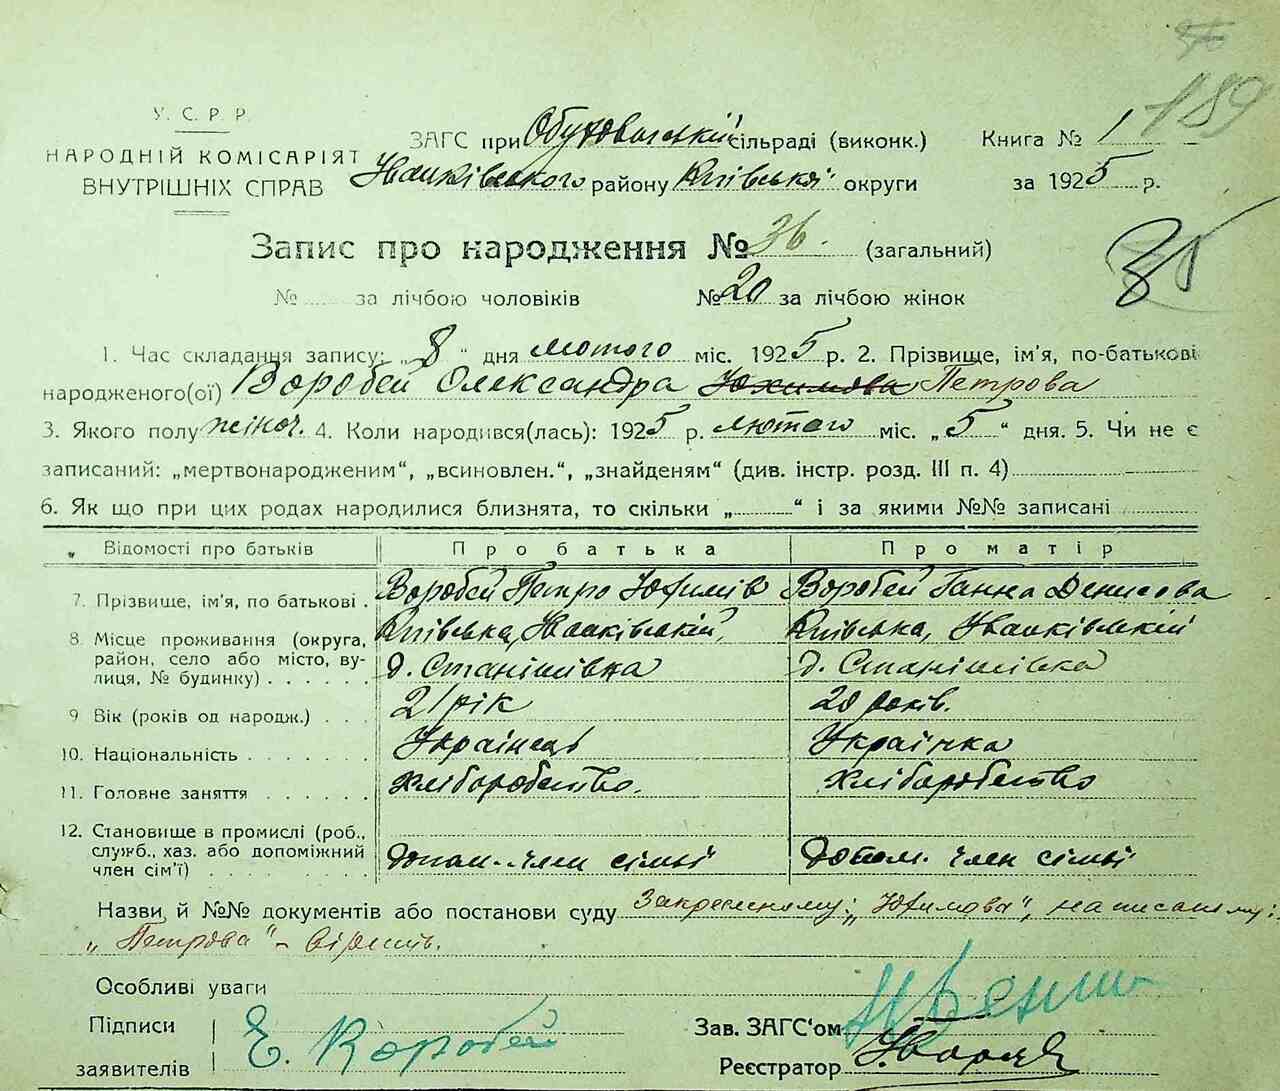 189
У. С. Р. Р.
НАРОДНІЙ КОМІСАРІЯТ
ВНУТРІШНІХ СПРАВ
ЗАГС при Обуховичській сільраді (виконк.) Книга № 1
Іванківського району Київської округи за 1925 р.
Запис про народження № 36. (загальний)
35
№ за лічбою чоловіків № 20 за лічбою жінок
1. Час складання запису: „8“ дня лютого міс. 1925 р. 2. Прізвище, ім'я, по-батькові
народженого(ої) Воробей Олександра Юхимова Петрова
3. Якого полу жіноч. 4. Коли народився(лась): 1925 р. лютого міс. „5“ дня. 5. Чи не є
записаний: „мертвонародженим“, „всиновлен.“, „знайденям“ (див. інстр. розд. III п. 4)
6. Як що при цих родах народилися близнята, то скільки „ “ і за якими №№ записані
Відомості про батьків Про батька Про матір
7. Прізвище, ім'я, по батькові . Воробей Петро Юхимів Воробей Ганна Денисова
8 Місце проживання (округа, Київська, Іванківській, Київська, Іванківській
район, село або місто, ву- д. Станішівка д. Станішівка
лиця, № будинку)
9 Вік (років од народж.) 21 рік 20 років.
10. Національність Українець Українка
11. Головне заняття хліборобство. хліборобство
12. Становище в промислі (роб.,
служб., хаз. або допоміжний допом. член сімьї допом. член сімьї
член сім'ї)
Назви й №№ документів або постанови суду Закресленому: „Юхимова“, написаному:
„Петрова“ - вірить.
Особливі уваги
Підписи Зав. ЗАГС'ом
заявителів Е. Воробей Реєстратор